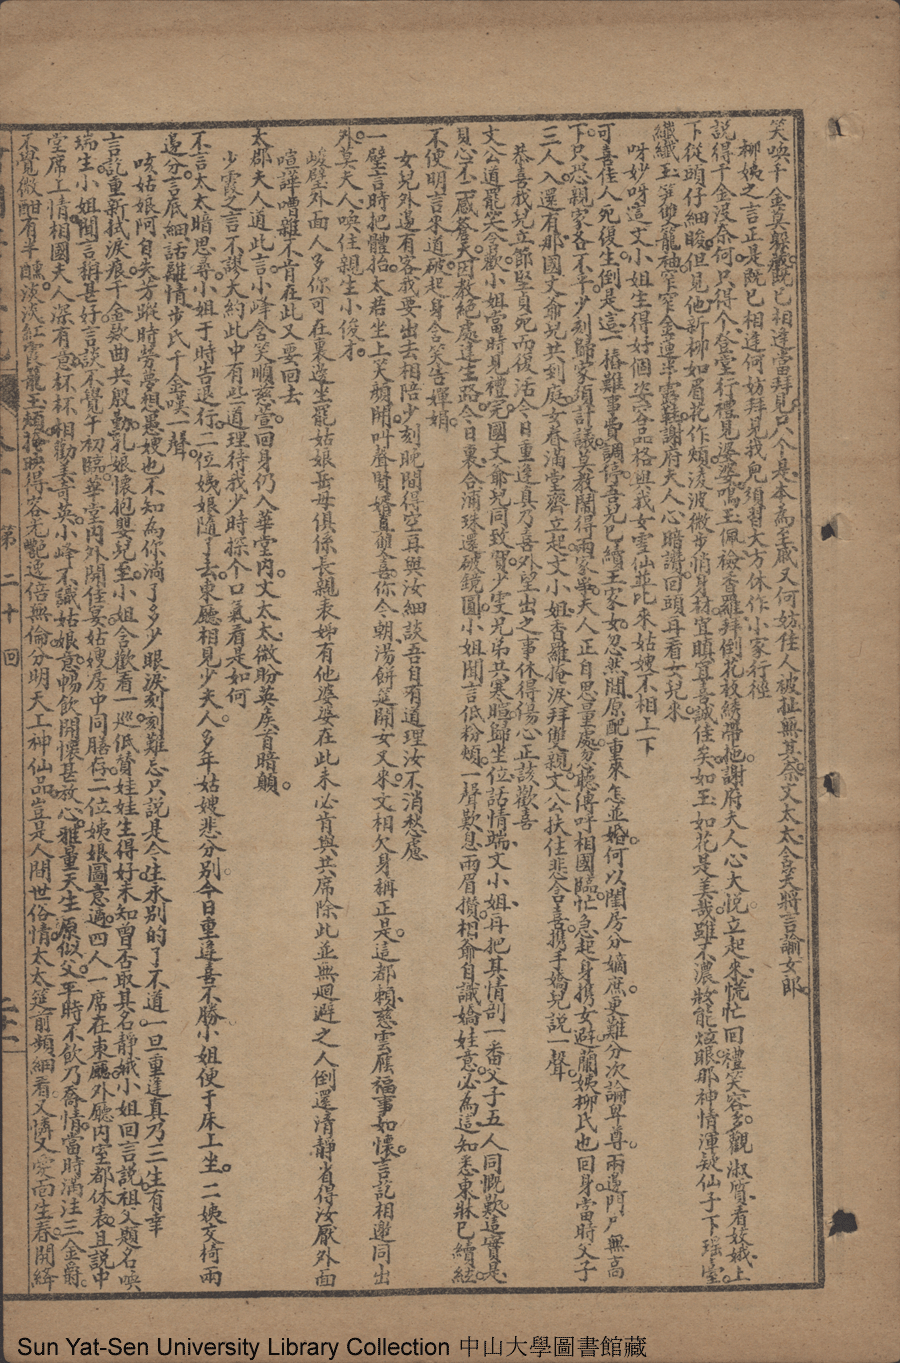 笑喚千金莫躲藏既已相逢當拜見只个是本為至戚又何妨佳人被扯無其奈文太太含笑將言諭女郎
柳姨之言正是既已相逢何妨拜見我兒須習大方休作小家行徑
說得千金沒奈何只得个登堂行禮見婆婆鳴玉佩裣香羅拜倒花枝綉帶拖謝府夫人心大悅立起來慌忙回禮笑容多觀淑質看姣娥上
下從頭仔細睃但見他新柳如眉花作頰凌波微步俏身材宜嗔宜喜誠佳矣如玉如花是美哉雖不濃妝能炫眼那神情渾疑仙子下瑤臺
纖纖玉笋雙籠袖窄窄金蓮半露鞋謝府夫人心暗讚回頭再看女兒來
呀妙呀這文小姐生得好個姿容品格與我女雪仙並比來姑嫂不相上下
可喜佳人死復生倒是這一樁難事費調停吾兒已續王家女忽然間原配重來怎並婚何以閨房分嫡庶更難分次論卑尊兩邊門戶無高
下只恐親家各不平少刻歸家須計議莫教鬧得兩家爭夫人正自思量處忽聽傳呼相國臨忙急起身携女避蘭姨柳氏也回身當時父子
三人入還有那國丈爺兒共到庭女眷滿堂齊立起文小姐香羅掩淚拜雙親文公扶住悲含喜携手嬌兒說一聲
恭喜我兒立節堅貞死而後活今日重逢真乃喜外望出之事休得傷心正該歡喜
文公道罷笑含歡小姐當時見禮完國丈爺兒同致賀少雯兄弟共寒暄歸坐位話情端文小姐再把其情剖一番父子五人同慨歎這實是
貞心不二感蒼天因教絕處逢生路今日裏合浦珠還破鏡圓小姐聞言低粉頰一聲歎息兩眉攢相爺自識嬌娃意必為這知悉東牀已續絃
不便明言來道破起身含笑告嬋娟
女兒外邊有客我要出去相陪少刻晚間得空再與汝細談吾自有道理汝不消愁慮
一壁言時把體抬太君坐上笑顏開叫聲賢婿直頭喜你今朝湯餅筵開女又來文相欠身稱正是這都賴慈雲庇福事如懷言訖相邀同出
外太夫人喚住親生小俊才
峻壁外面人多你可在裏邊坐罷姑娘岳母俱係長親表姊有他婆婆在此未必肯與共席除此並無迴避之人倒還清靜省得汝厭外面
喧譁嘈雜不肯在此又要回去
太郡夫人道此言小峰含笑順慈萱回身仍入華堂內文太太微盼英矦首暗顛
少霞之言不謬大約此中有些道理待我少時探个口氣看是如何
不言太太暗思尋小姐于時告退行二位姨娘隨了去東廳相見少夫人多年姑嫂悲分別今日重逢喜不勝小姐便于床上坐二姨交椅兩
邊分言底細話離情步氏千金嘆一聲
咳姑娘阿自失芳蹤時勞夢想愚嫂也不知為你淌了多少眼淚刻刻難忘只說是今生永別的了不道一旦重逢真乃三生有幸
言訖重新拭淚痕千金欵曲共殷勤乳娘懷抱嬰兒至小姐含歡看一巡低贊娃娃生得好未知曾否取其名靜娥小姐回言說祖父題名喚
瑞生小姐聞言稱甚好言談不覺午初臨華堂內外開佳宴姑嫂房中同膳存二位姨娘圖意適四人一席在東廳外廳內室都休表且說中
堂席上情相國夫人深有意杯杯相勸美哥英小峰不識姑娘意暢飲開懷甚放心雅量天生原似父平時不飲乃喬情當時滿注三金爵
不覺微酣有半醺淡淡紅霞籠玉頰掩映得容光艷逸倍無倫分明天上神仙品豈是人間世俗情太太筵前頻細看又憐又愛面生春開絳
第二十回
二十一
Sun Yat-Sen University Library Collection 中山大學圖書館藏